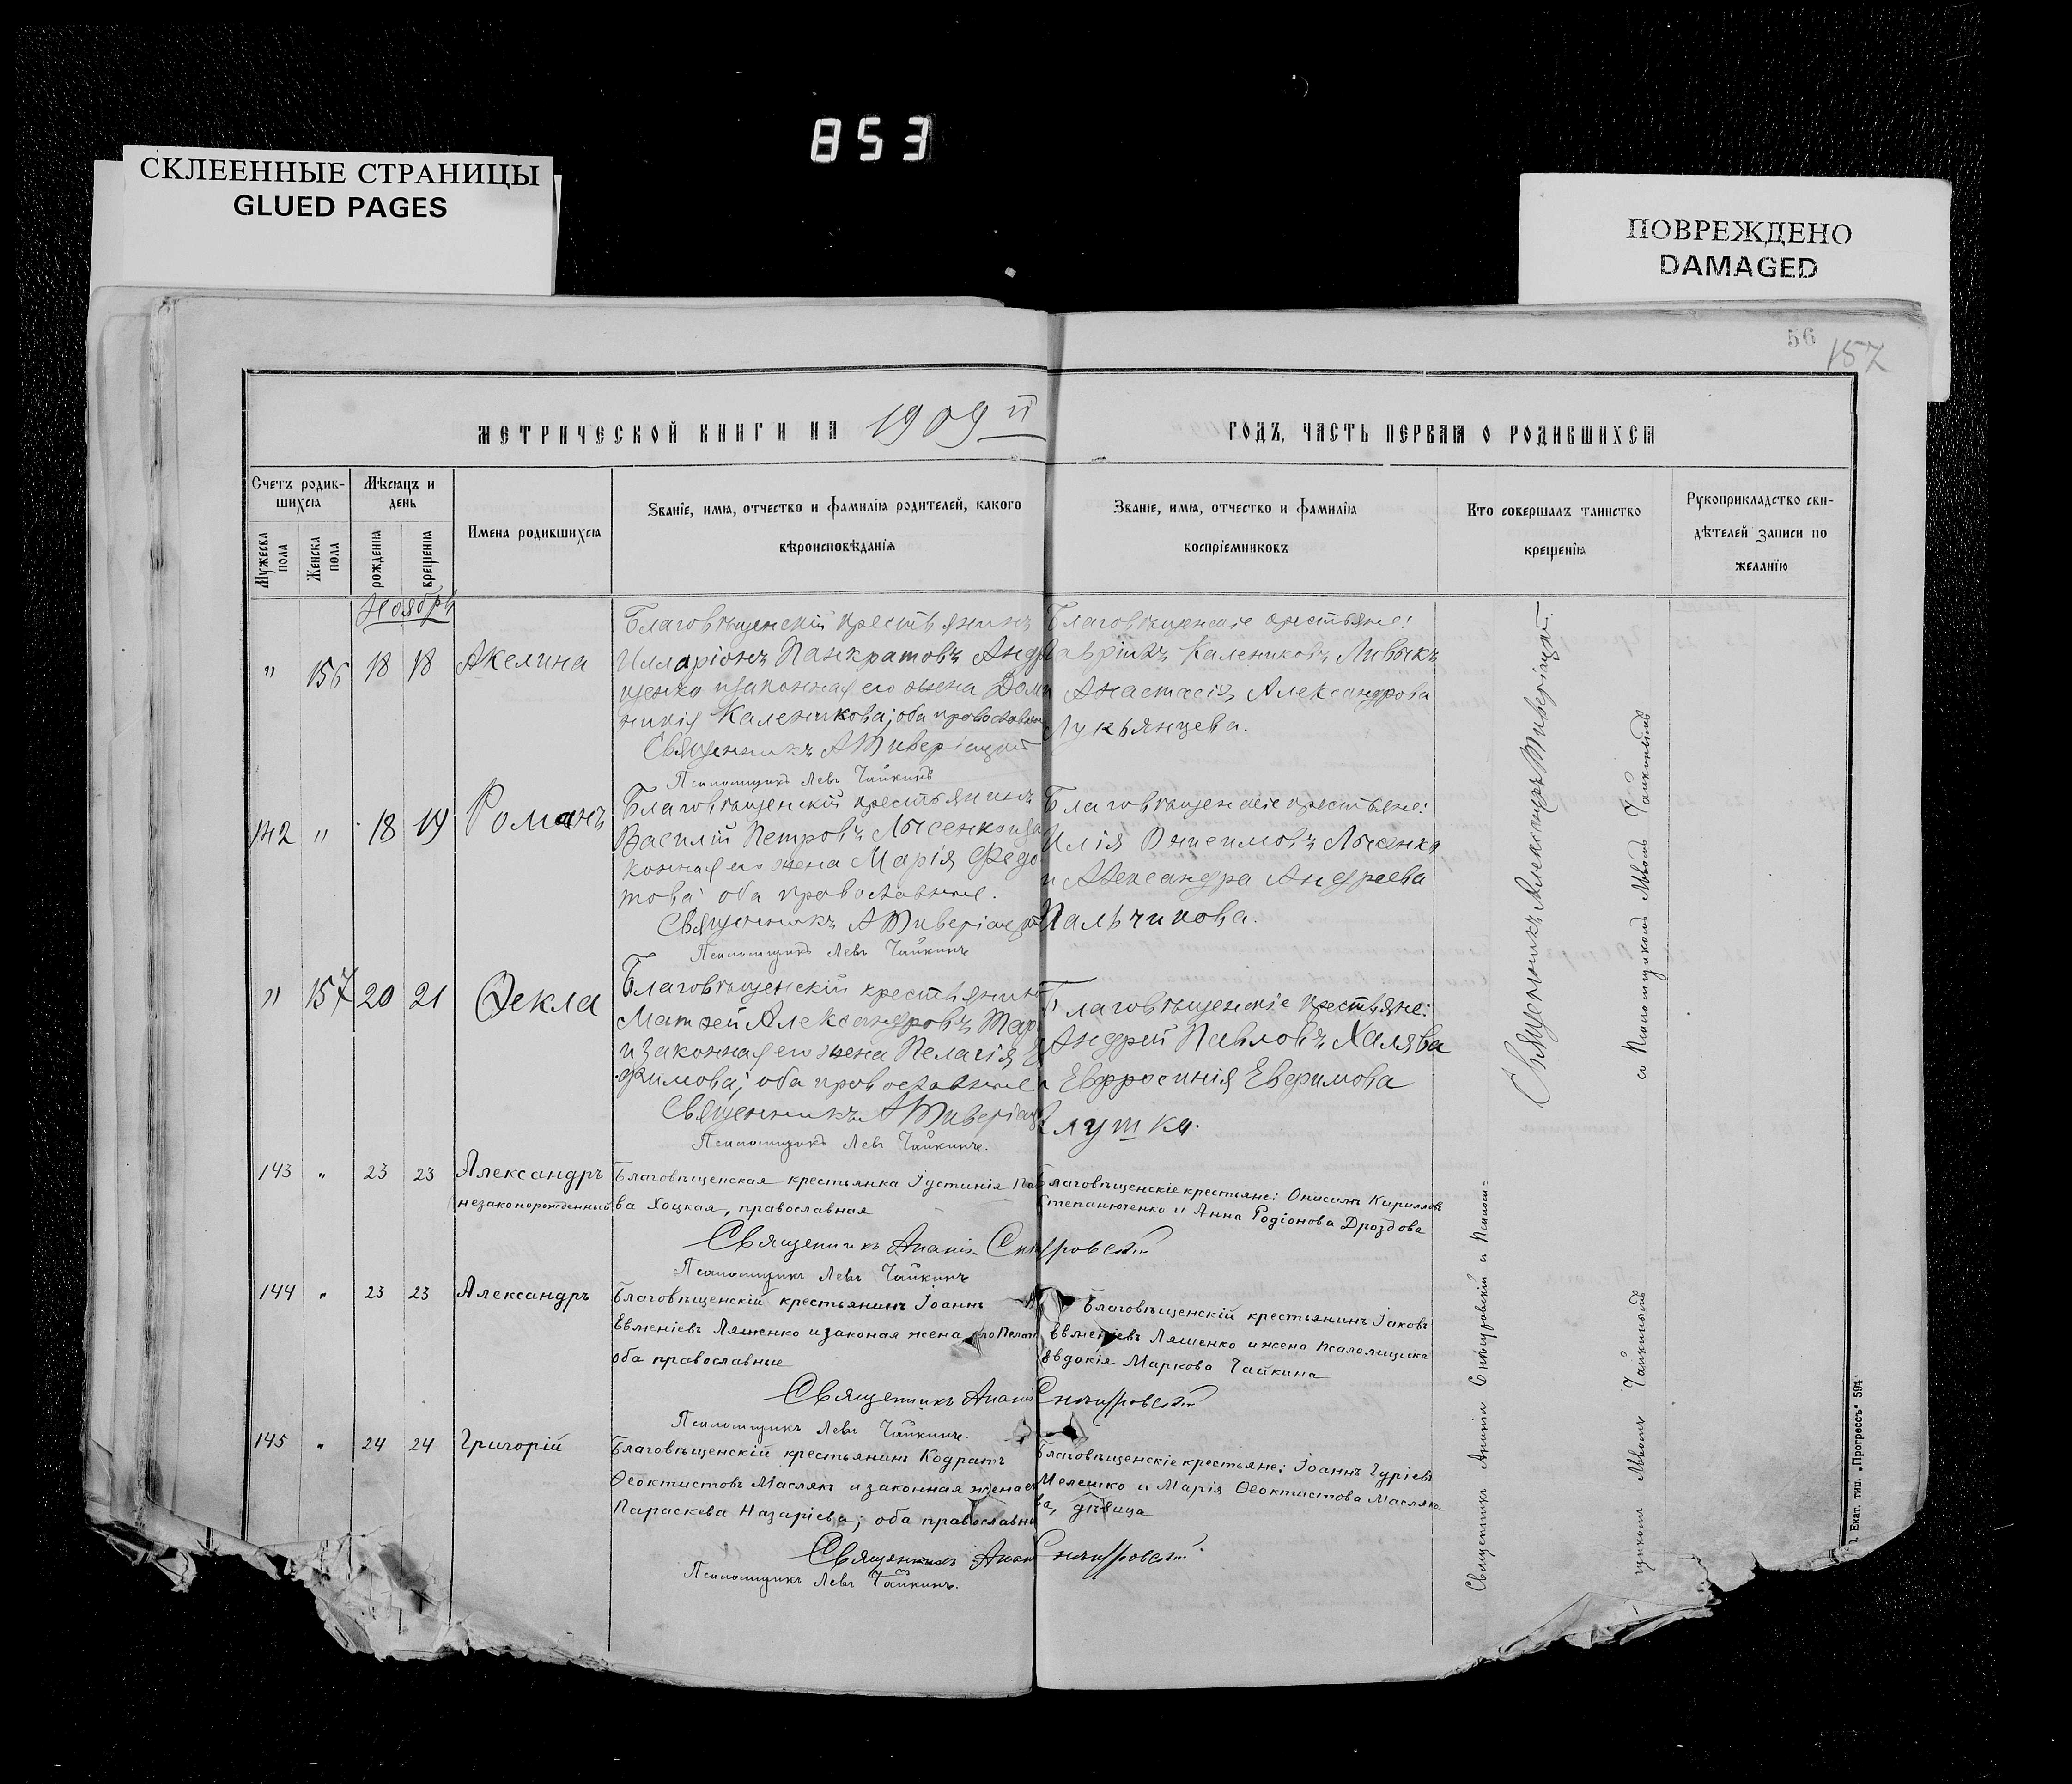 853
СКЛЕЕННЫЕ СТРАНИЦЫ
GLUED PAGES
ПОВРЕЖДЕНО
DAMAGED
56
157
МЕТРИЧЕСКОЙ КНИГИ НА 1909й ГОДЪ, ЧАСТЬ ПЕРВАЯ О РОДИВШИХСЯ
Счетъ родив-
шихся
Мужеска
пола
Женска
пола
Мѣсяцъ и
день
рожденія
крещенія
Имена родившихся
Званіе, имя, отчество и фамилія родителей, какого
вѣроисповѣданія
Званіе, имя, отчество и фамилія
воспріемниковъ
Кто совершалъ таинство
крещенія
Рукоприкладство сви-
дѣтелей записи по
желанію
Ноябрь
" 156 18 18 Акелина
Благовѣщенскій крестьянинъ
Илларіонъ Панкратовъ Анд
щенко и законная его жена Дом
никія Каленикова; оба православн
Священникъ А Тиверіацкій
Псаломщикъ Левъ Чайкинъ
Благовѣщенскіе крестьяне:
Каленековъ Ливыкъ
Анастасія Александрова
Лукьянцева.
142 " 18 19 Романъ
Благовѣщенскій крестьянинъ
Василій Петровъ Лысенко и за
конная его жена Марія Федо
това; оба православные.
Священникъ А Тиверіацкій
Псаломщикъ Левъ Чайкинъ
Благовѣщенскіе крестьяне:
Илія Онисимовъ Лысенко
и Александра Андреева
Пальчикова.
" 157 20 21 Ѳекла
Благовѣщенскій крестьянинъ
Матѳей Александровъ
и законная его жена Пелагія
фимова; оба православные
Священникъ А Тиверіац
Псаломщикъ Левъ Чайкинъ.
Благовѣщенскіе крестьяне:
Андрей Павловъ Халява
и Евфросинія Евфимова
143 " 23 23 Александръ
незаконорожденный
Благовѣщенская крестьянка Іустинія
ва Хоцкая, православная
Священникъ Ананія
Псаломщикъ Левъ Чайкинъ
Благовѣщенскіе крестьяне: Онисимъ Кирилловъ
Степанюченко и Анна Родіонова Дроздова
144 " 23 23 Александръ
Благовѣщенскій крестьянинъ Іоаннъ
Евменіевъ Ляшенко и законая жена его Пелаг
оба православные
Священникъ Ананія
Псаломщикъ Левъ Чайкинъ.
Благовѣщенскій крестьянинъ Іаковъ
Евменіевъ Ляшенко и жена псаломщика
Евдокія Маркова Чайкина
145 " 24 24 Григорій
Благовѣщенскій крестьянинъ Кодратъ
Ѳеоктистовъ Маслякъ и законная жена ег
Параскева Назаріева; оба православны
Священникъ Ананія
Псаломщикъ Левъ Чайкинъ.
Благовѣщенскіе крестьяне: Іоаннъ Гуріевъ
Мелешко и Марія Ѳеоктистова Масляко
ва, дѣвица
Священникъ Александръ Тиверіацкій.
со Псаломщикомъ Львомъ Чайкинымъ
Священникъ Ананія и Псалом-
щикомъ Львомъ Чайкинымъ
Екат. тип. „Прогрессъ“ 594